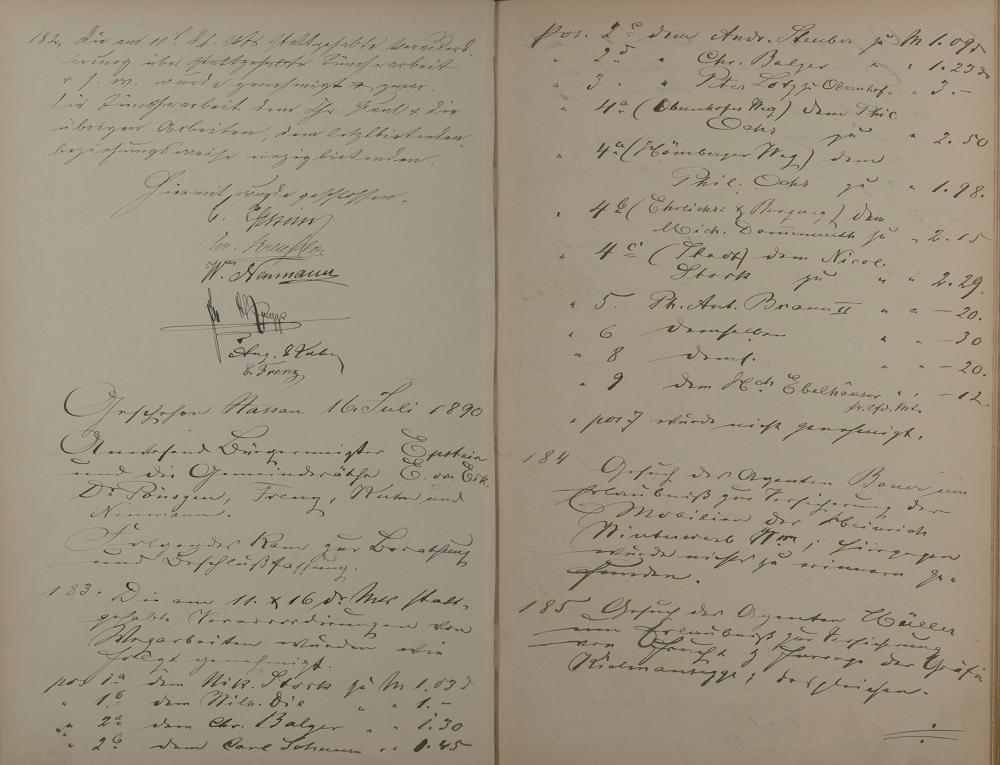 182. Die am 11t. d. Mts stattgehabte Veraccord-
irung über Stattgehabte Tüncherarbeit
u. s. w. wurde genehmigt & zwar
die Tüncherarbeit dem Chr. Paul & die
übrigen Arbeiten, dem letztbietenden
beziehungsweise einzigbietenden.
Hiermit wurde geschlossen.
W. Neumann
Aug. Kuhn
E. Frenz
Geschehen Nassau 16. Juli 1890
Anwesend Bürgermeister Epstein
und die Gemeinderäthe E. von Eck.
Dr Pönsgen, Frenz, Kuhn und
Neumann.
Folgendes kam zur Berathung
und Beschlußfassung.
183. Die am 11. & 16 ds. Mts statt-
gehabte Veraccordirungen von
Wegarbeiten wurden wie
folgt genehmigt.
pos 1a dem Nik. Stork zu M 1.03 d
" 1.b dem Wilh. " " 1.–
" 2a dem Chr. Balzer " " 1.30
" 2b dem Carl " " 1.45
Pos. 2c dem Andr. Steuber zu M 1.09 d
" 2d " Chr. Balzer " " 1.23 d
" 3 " Peter Lotz zu Obernhof " 3.–
" 4a (Obernhofer Weg) dem Phil.
Ochs zu " 2.50
" 4a (Hömberger Weg) dem
Phil. Ochs zu " 1.98.
" 4b ( & Burgweg) dem
Mich. Dommermuth zu " 2.15
" 4c (Stadt) dem Nicol.
Stork zu " " 2.29.
" 5. Ph. Ant. Braun II " " – 20.
" 6 demselben " " – 30
" 8 dems. " " – 20.
" 9 dem Hch Ebelhäuser " " – 12
pr. lfd. Mt.
" pos 7 wurde nicht genehmigt.
184 Gesuch des Agenten Bauer um
Erlaubniß zur Versicherung der
Mobilien des Heinrich
Winterwerb; hiergegen
wurde nichts zu erinnern ge-
funden.
185 Gesuch des Agenten Müller
um Erlaubniß zur Versicherung
von Frucht & der Gräfin
Kielmansegge; desgleichen.